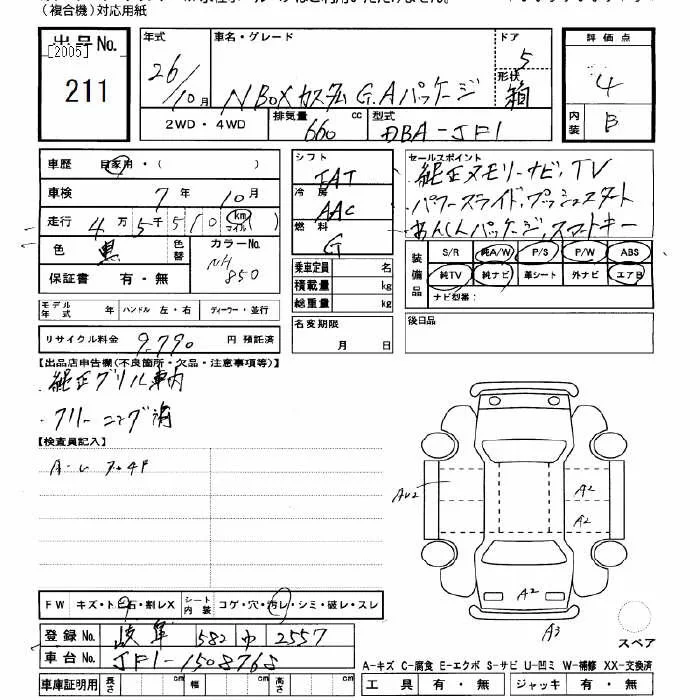 (複合機)対応用紙
出品No.
[2005]
211
年式
26/10月
車名・グレード
N BOXカスタム G.Aパッケージ
ドア
5
形状
箱
評価点
4
内装
B
2WD・4WD
排気量
660 cc
型式
DBA-JF1
車歴 自家用・( )
車検 7年 10月
走行 4万5千510 km マイル
色 黒 色替 カラーNo. NH 850
保証書 有・無
モデル年式 年 ハンドル 左・右 ディーラー・並行
リサイクル料金 9,790 円 預託済
シフト
IAT
冷房
AAC
燃料
G
乗車定員 名
積載量 kg
総重量 kg
名変期限
月 日
セールスポイント
純正メモリーナビ、TV
パワースライド、プッシュスタート
あんしんパッケージ、スマートキー
装備品
S/R 純A/W P/S P/W ABS
純TV 純ナビ 革シート 外ナビ エアB
ナビ型番:
後日品
【出品店申告欄(不良箇所・欠品・注意事項等)】
・純正グリル車内
・クリーニング済
【検査員記入】
FW キズ・トビ石・割レX シート内装 コゲ・穴・汚レ・シミ・破レ・スレ
登録No. 岐阜 582 わ 2557
車台No. JF1-1508768
車庫証明用 長さ cm 幅 cm 高さ cm
A2
A2
A2
A3
スペア
A-キズ C-腐食 E-エクボ S-サビ U-凹ミ W-補修 XX-交換済
工具 有・無 ジャッキ 有・無